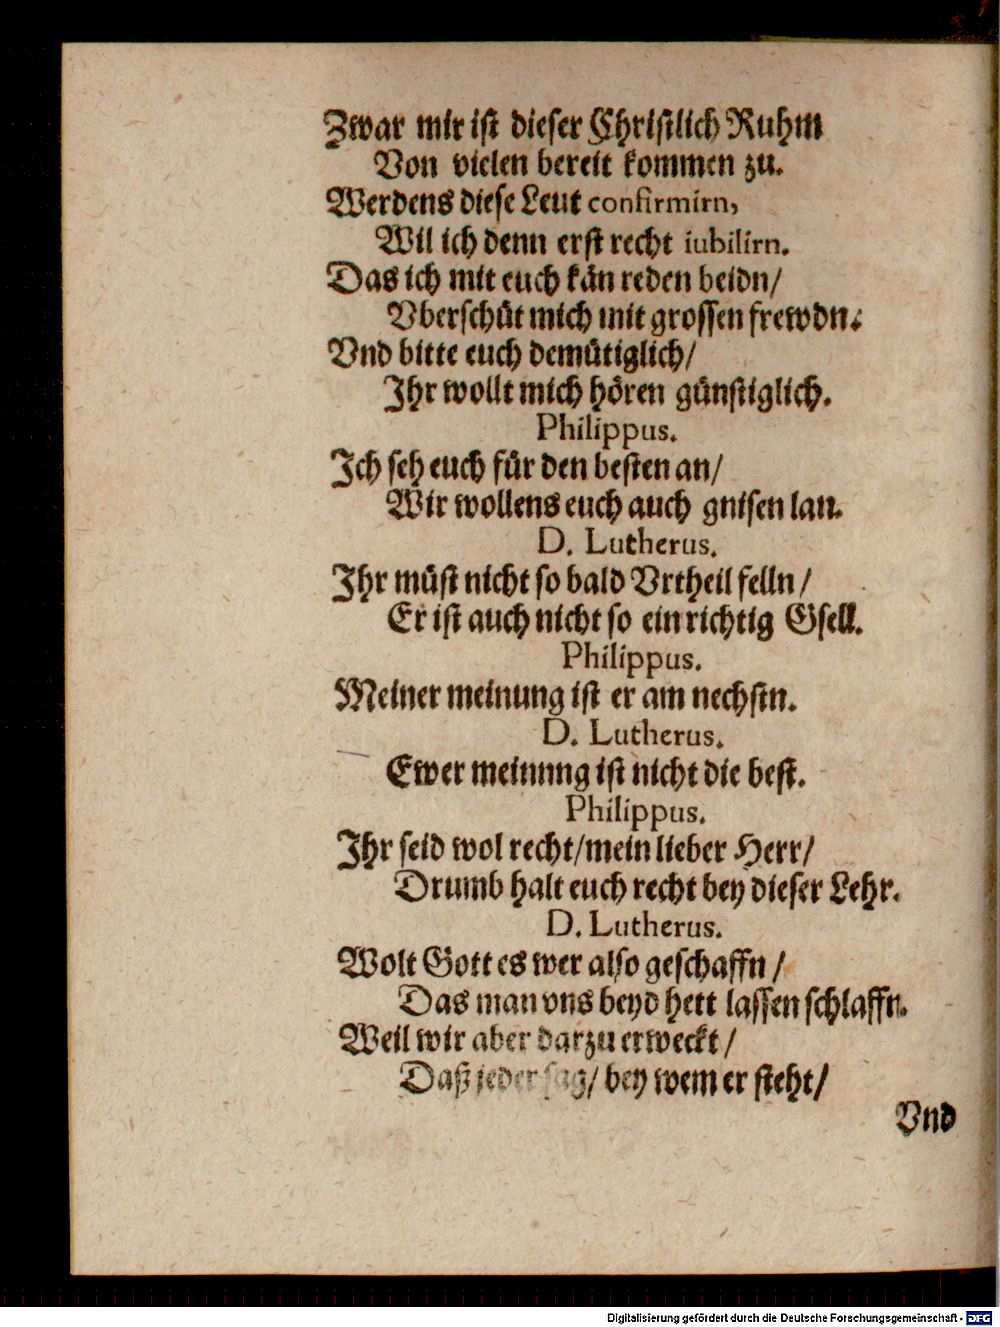 Zwar mir ist dieser Christlich Ruhm
Von vielen bereit kommen zu.
Werdens diese Leut confirmirn,
Wil ich denn erst recht iubilirn.
Das ich mit euch kan reden beidn/
Vberschüt mich mit grossen frewdn.
Vnd bitte euch demütiglich/
Ihr wollt mich hören günstiglich.
Philippus.
Ich seh euch für den besten an/
Wir wollens euch auch gnisen lan.
D. Lutherus.
Ihr müst nicht so bald Vrtheil felln/
Er ist auch nicht so ein richtig Gsell.
Philippus.
Meiner meinung ist er am nechstn.
D. Lutherus.
Ewer meinung ist nicht die best.
Philippus.
Ihr seid wol recht/mein lieber Herr/
Drumb halt euch recht bey dieser Lehr.
D. Lutherus.
Wolt Gott es wer also geschaffn/
Das man vns beyd hett lassen schlaffn.
Weil wir aber darzu erweckt/
Daß jeder sag/ bey wem er steht/
Vnd
Digitalisierung gefördert durch die Deutsche Forschungsgemeinschaft - DFG